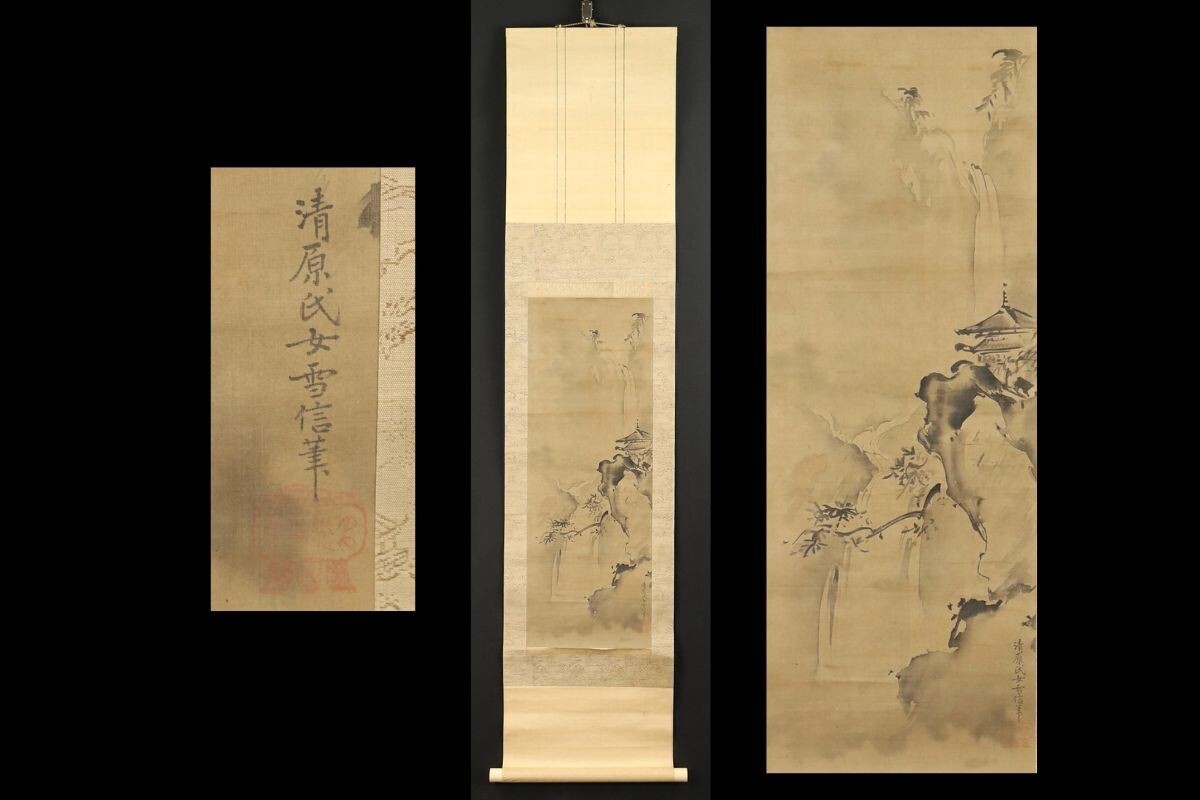 清原氏女雪信筆
清原氏女雪信筆